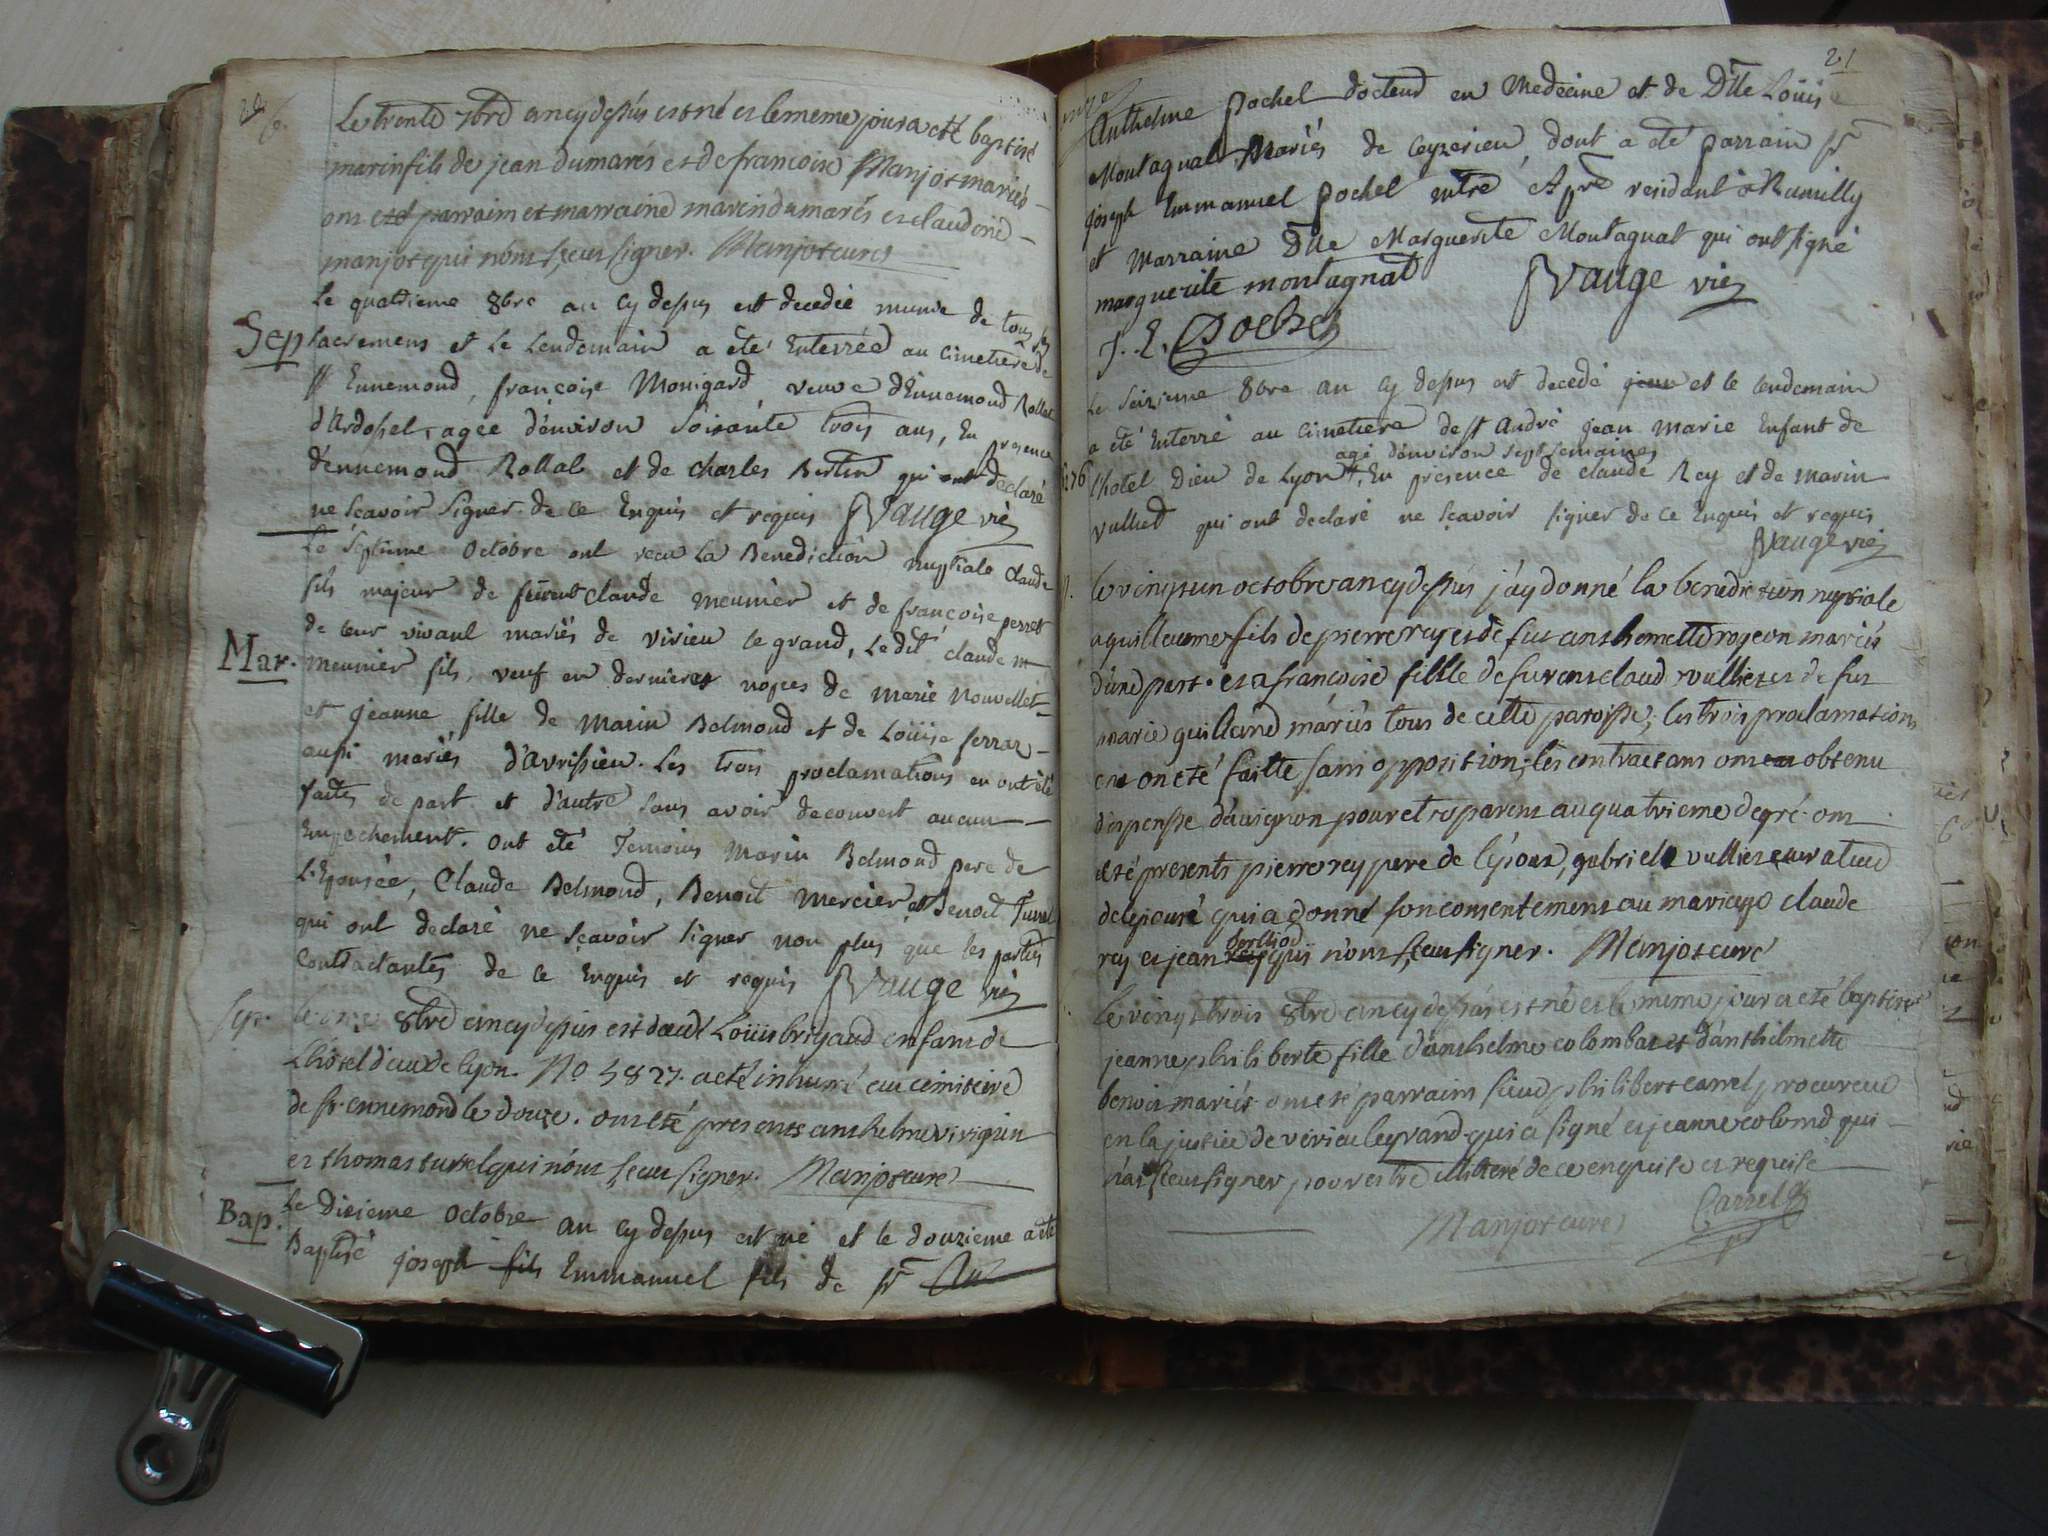 Le trente 7bre an cy dessus est né et le meme jour a eté baptisé
marin fils de jean dumarés et de francoise Manjot mariés
ont eté parraim et marraine marin dumarés et claudine
manjot qui n'ont sceu signer. Manjot curé
Le quatrieme 8bre an cy dessus est decedée munie de tous les
Sep
sacremens et Le Lendemain a eté Enterrée au cimetiere de
st Ennemond, françoise Monigard veuve d'Ennemond Rollet
d'Ardosset, agée d'environ soixante trois ans, En presence
d'ennemond Rollat et de charles Bertin qui ont declaré
ne sçavoir signer de ce Enquis et requis JVauge vic
Le Septieme Octobre ont recu La Benediction nuptiale Claude
fils majeur de furent claude meunier et de francoise perret
de leur vivant mariés de virieu le grand, Le dit claude m
Mar.
meunier fils, veuf en dernieres nopces de marie nouvellet
et jeanne fille de marin Belmond et de Loüise ferrar
aussi mariés d'avrissieu. Les trois proclamations en ont été
faites de part et d'autre sans avoir decouvert aucun
Empechement. ont eté Temoins Marin Belmond pere de
L'Epousée, Claude Belmond, Benoit mercier et Benoit Turrel
qui ont declaré ne sçavoir signer non plus que les parties
Contractantes de ce Enquis et requis JVauge vic
Sep.
Le onze 8bre an cy dessus est decedé Loüis brigaud enfant de
L'hotel dieu de lyon. No 5827. a eté inhumé au cimiteire
de st. ennemond le douze. ont eté presents anthelme vivignin
et thomas turrel qui n'ont sceu signer. Manjot curé
Bap.
Le dixieme octobre an cy dessus est né et le douzieme a eté
Baptisé joseph fils Emmanuel fils de sr
21
Anthelme pochel docteur en Medecine et de Dlle Loüise
Montagnat Mariés de Ceyzerieu, dont a eté parrain sr
joseph Emmanuel pochel residant a Rumilly
et Marraine Dlle Marguerite Montagnat qui ont signé
marguerite montagnat JVauge vic
J. E. Pochel
Le seizieme 8bre an cy dessus est decedé jean et le lendemain
a eté Enterré au cimetiere de st André jean marie Enfant de
agé d'environ sept semaines
L'hotel Dieu de Lyon, En presence de claude Rey et de marin
vulliet qui ont declaré ne sçavoir signer de ce Enquis et requis
JVauge vic
Le vingt un octobre an cy dessus j'ay donné la benediction nuptiale
a guilleaume fils de pierre rey et de fut anthemette rogeon mariés
d'une part. et a francoise fillle de furent claud vulliet et de fut
marie guilland mariés tous de cette paroisse; les trois proclamations
en ont eté faitte sans opposition; les contractans ont en obtenu
dispensse d'avignon pour etre parent au quatrieme degré. ont
eté presents pierre rey pere de l'epoux, gabriel vulliez curateur
de l'epouse qui a donné son consentement au mariage claude
borlliod
rey et jean rey qui n'ont sceu signer. Manjot curé
Le vingt trois 8bre an cy dessus est né et le meme jour a eté baptisé
jeanne philiberte fille d'anthelme colombat et d'anthelmette
benoit mariés ont eté parraim sieur philibert carrel procureur
en la justice de virieu le grand qui a signé et jeanne colomb qui
n'a sceu signer pour estre illitteré de ce enquise et requise
Manjot curé Carrel